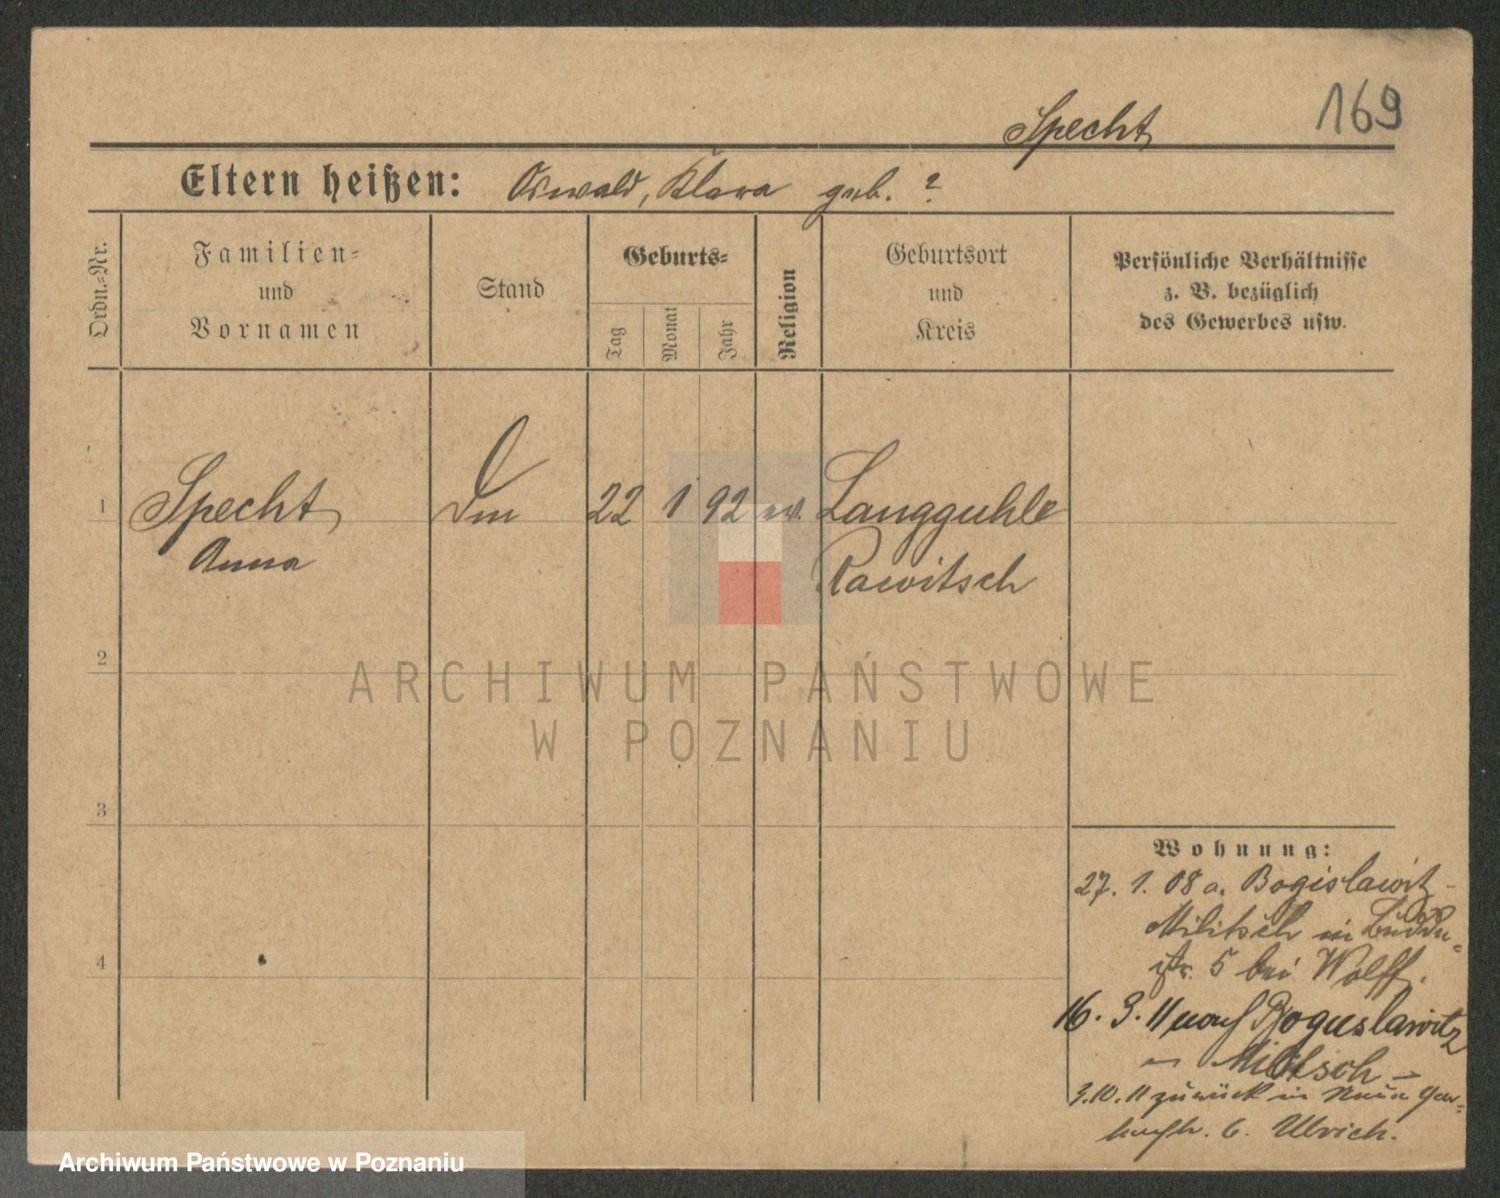 169
Specht
Eltern heißen: Oswald, Klara geb. ?
Ordn.-Nr.
Familien-
und
Vornamen
Stand
Geburts-
Tag
Monat
Jahr
Religion
Geburtsort
und
Kreis
Persönliche Verhältnisse
z. B. bezüglich
des Gewerbes usw.
1 Specht 22 1 92 ev. Langguhle
Anna Rawitsch
2
3
4
ARCHIWUM PAŃSTWOWE
W POZNANIU
Wohnung:
27. 1. 08 a. Bogislawitz
Militsch in
str. 5 bei Wolff.
16. 3. 11 nach Boguslawitz
Militsch
3.10.11 zurück in Neue Gar-
6. Ulrich.
Archiwum Państwowe w Poznaniu